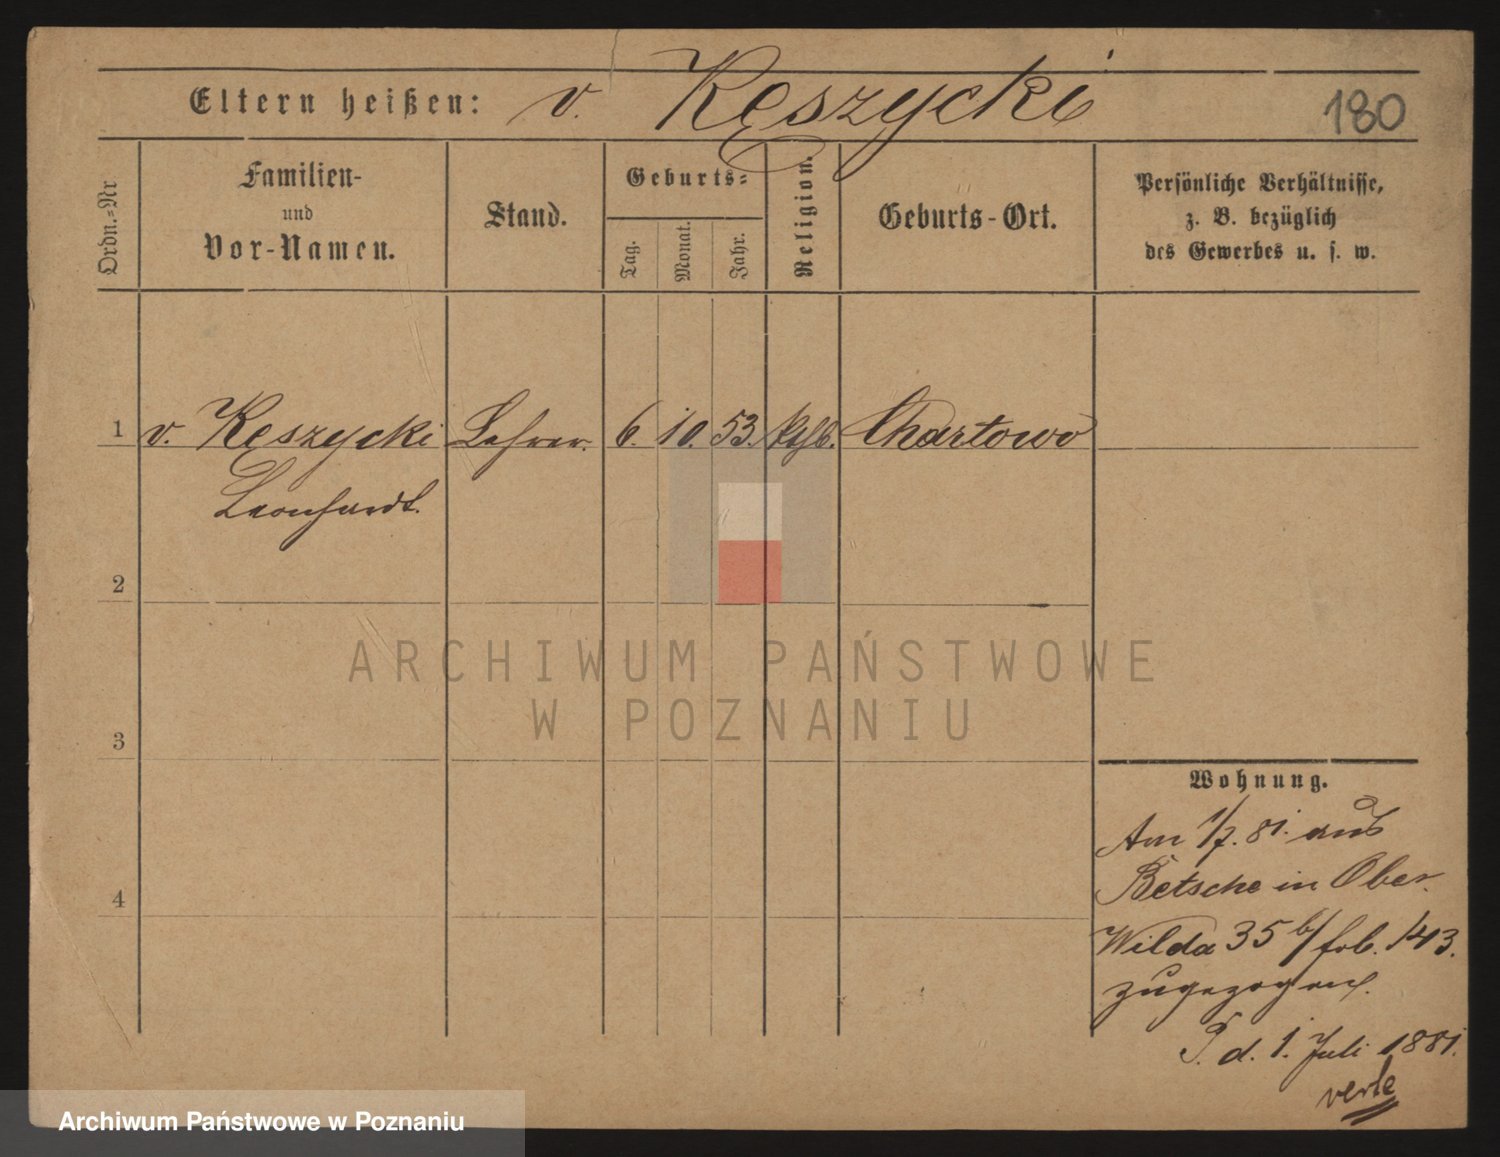 Eltern heißen: v. Kęszycki 180
Ordn.-Nr
Familien-
und
Vor-Namen.
Stand.
Geburts-
Tag.
Monat.
Jahr.
Religion.
Geburts-Ort.
Persönliche Verhältnisse,
z. B. bezüglich
des Gewerbes u. s. w.
1 v. Kęszycki Lehrer. 6. 10. 53. kthl. Chartowo
Leonhardt.
2
ARCHIWUM PAŃSTWOWE
W POZNANIU
3
Wohnung.
Am 1/7. 81. aus
Betsche in Ober
Wilda 35 b/ 143.
zugezogen.
P. d. 1. Juli 1881.
4
Archiwum Państwowe w Poznaniu